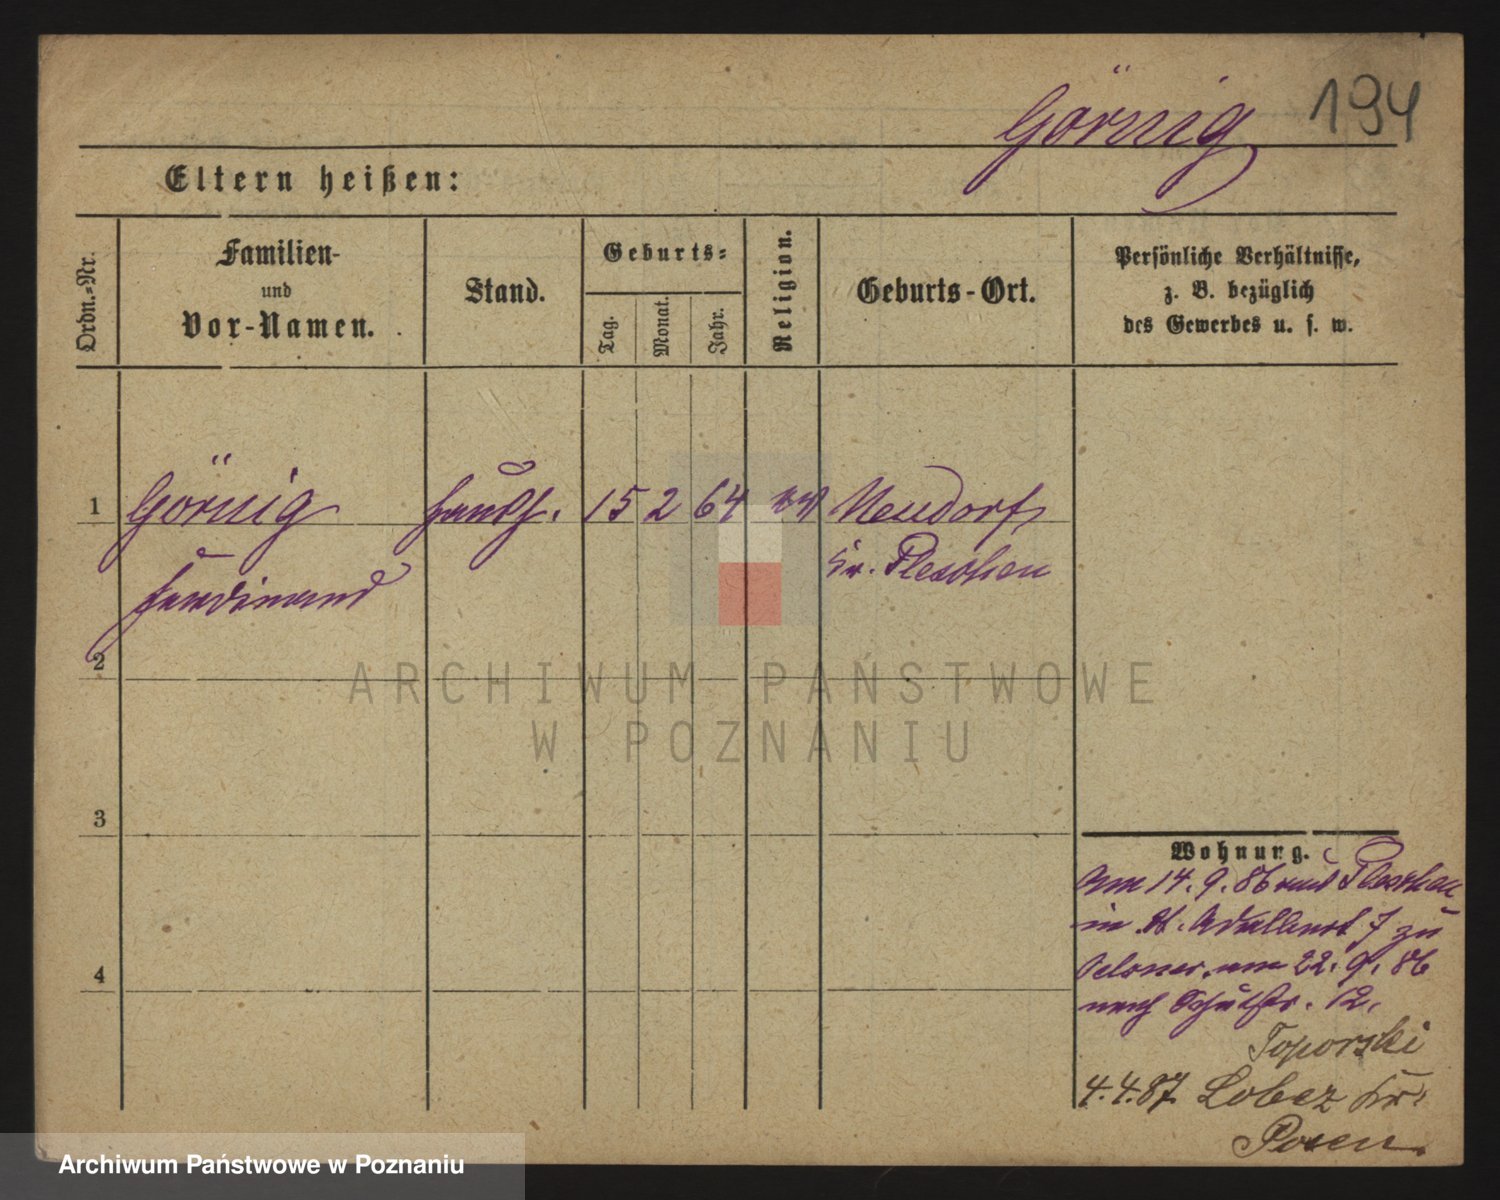 194
Görnig
Eltern heißen:
Ordn.-Nr.
Familien-
und
Vor-Namen.
Stand.
Geburts-
Tag.
Monat.
Jahr.
Religion.
Geburts-Ort.
Persönliche Verhältnisse,
z. B. bezüglich
des Gewerbes u. s. w.
1 Görnig 15 2 64 ev Neudorf
Ferdinand Kr. Pleschen
2
ARCHIWUM PAŃSTWOWE
W POZNANIU
3
4
Wohnung.
Am 14. 9. 86 aus Pleschen
in St. Adalbert 7 zu
am 22. 9. 86
nach 12.
Toporski
4.4.87. Lobez Kr.
Posen.
Archiwum Państwowe w Poznaniu